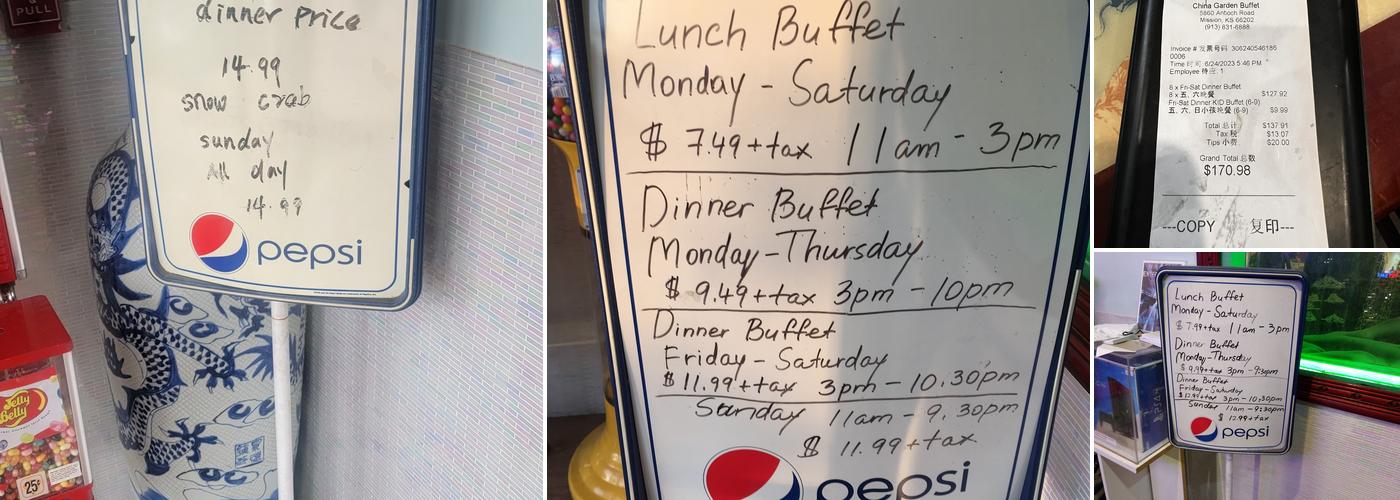 & PULL
dinner price
14.99
snow crab
sunday
All day
14.99
pepsi
Jelly Belly
25¢
Lunch Buffet
Monday - Saturday
$ 7.49+tax 11am - 3pm
Dinner Buffet
Monday-Thursday
$ 9.49+tax 3pm - 10pm
Dinner Buffet
Friday - Saturday
$ 11.99+tax 3pm - 10.30pm
Sunday 11am - 9.30pm
$ 11.99+tax
pepsi
China Garden Buffet
5860 Antioch Road
Mission, KS 66202
(913) 831-6888
Invoice # 发票号码 306240546186
0006
Time 时间: 6/24/2023 5:46 PM
Employee 侍应: 1
8 x Fri-Sat Dinner Buffet
8 x 五, 六晚餐 $127.92
Fri-Sat Dinner KID Buffet (6-9)
五, 六, 日小孩晚餐 (6-9) $9.99
Total 总计 $137.91
Tax 税 $13.07
Tips 小费: $20.00
Grand Total 总数
$170.98
---COPY 复印---
Lunch Buffet
Monday - Saturday
$ 7.99+tax 11am - 3pm
Dinner Buffet
Monday-Thursday
$ 9.99+tax 3pm - 9:30pm
Dinner Buffet
Friday - Saturday
$ 12.99+tax 3pm - 10.30pm
Sunday 11am - 9:30pm
$ 12.99+tax
pepsi